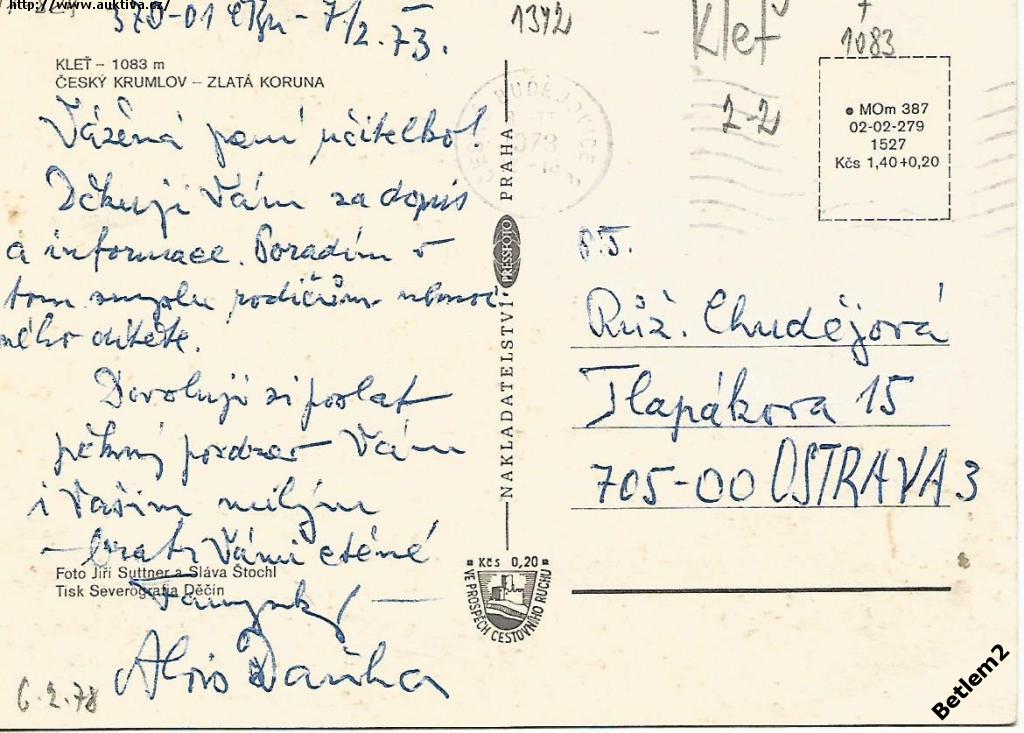 http://www.auktiva.cz/
370-01 7/2.73.
1342
Kleť
1083
KLEŤ – 1083 m
ČESKÝ KRUMLOV – ZLATÁ KORUNA
Vážená paní učitelko!
Děkuji Vám za dopis
a informace. Poradím v
tom smyslu rodičům nemoc
ného dítěte.
Dovoluji si poslat
pěkný pozdrav Vám
i Vašim milým
Vámi ctěné
Alois
Foto Jiří Suttner a Sláva Štochl
Tisk Severografia Děčín
6.2.78
BUDĚJOVICE
NAKLADATELSTVÍ PRESSFOTO PRAHA
Kčs 0,20
VE PROSPĚCH CESTOVNÍHO RUCHU
2-2
MOm 387
02-02-279
1527
Kčs 1,40+0,20
P.T.
Růž. Chudějová
Tlapákova 15
705-00 OSTRAVA 3
Betlem2